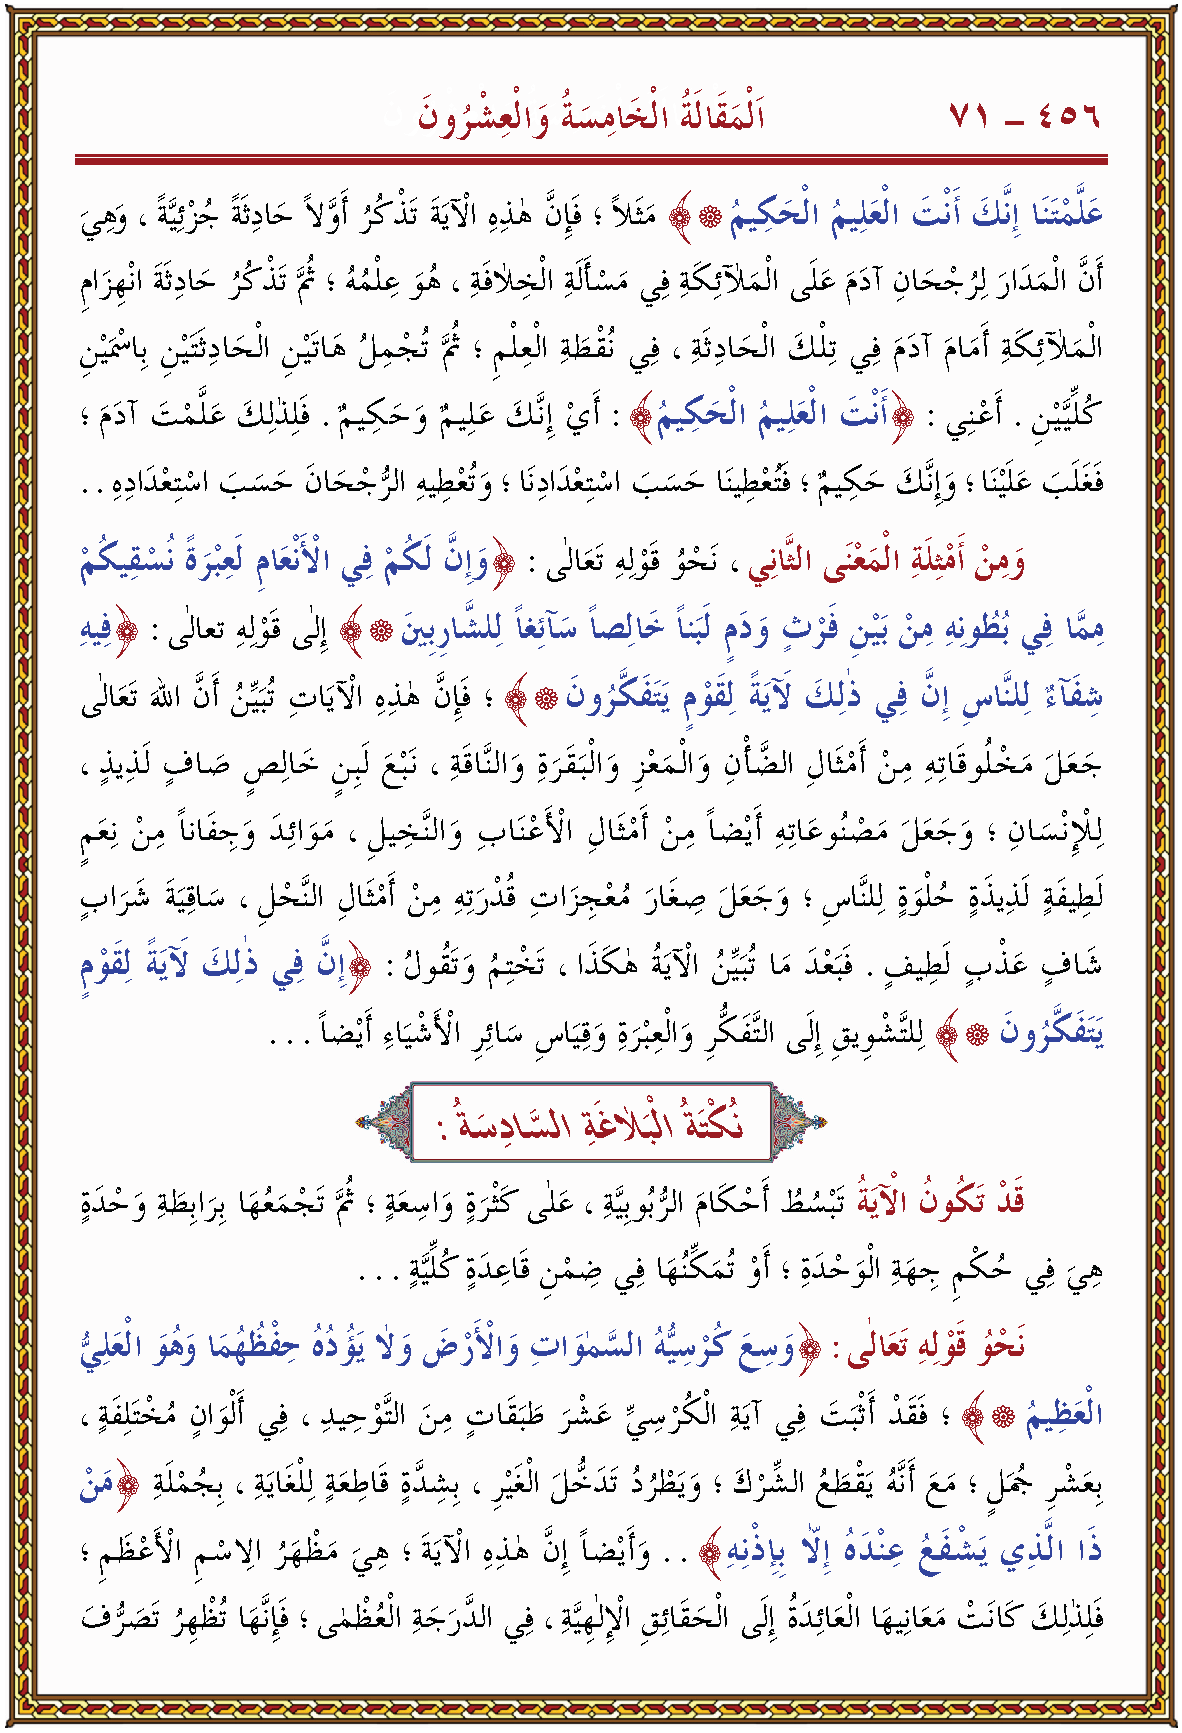 ٤٥٦ – ٧١ اَلْمَقَالَةُ الْخَامِسَةُ وَالْعِشْرُونَ
عَلَّمْتَنَا إِنَّكَ أَنْتَ الْعَلِيمُ الْحَكِيمُ ۞﴾ مَثَلاً ؛ فَإِنَّ هٰذِهِ الْآيَةَ تَذْكُرُ أَوَّلاً حَادِثَةً جُزْئِيَّةً ، وَهِيَ
أَنَّ الْمَدَارَ لِرُجْحَانِ آدَمَ عَلَى الْمَلٰآئِكَةِ فِي مَسْأَلَةِ الْخِلاٰفَةِ ، هُوَ عِلْمُهُ ؛ ثُمَّ تَذْكُرُ حَادِثَةَ انْهِزَامِ
الْمَلٰآئِكَةِ أَمَامَ آدَمَ فِي تِلْكَ الْحَادِثَةِ ، فِي نُقْطَةِ الْعِلْمِ ؛ ثُمَّ تُجْمِلُ هَاتَيْنِ الْحَادِثَتَيْنِ بِاسْمَيْنِ
كُلِّيَّيْنِ . أَعْنِي : ﴿أَنْتَ الْعَلِيمُ الْحَكِيمُ﴾ : أَيْ إِنَّكَ عَلِيمٌ وَحَكِيمٌ . فَلِذٰلِكَ عَلَّمْتَ آدَمَ ؛
فَغَلَبَ عَلَيْنَا ؛ وَإِنَّكَ حَكِيمٌ ؛ فَتُعْطِينَا حَسَبَ اسْتِعْدَادِنَا ؛ وَتُعْطِيهِ الرُّجْحَانَ حَسَبَ اسْتِعْدَادِهِ . .
وَمِنْ أَمْثِلَةِ الْمَعْنَى الثَّانِي ، نَحْوُ قَوْلِهِ تَعَالٰى : ﴿وَإِنَّ لَكُمْ فِي الْأَنْعَامِ لَعِبْرَةً نُسْقِيكُمْ
مِمَّا فِي بُطُونِهِ مِنْ بَيْنِ فَرْثٍ وَدَمٍ لَبَناً خَالِصاً سَآئِغاً لِلشَّارِبِينَ ۞﴾ إِلٰى قَوْلِهِ تعالٰى : ﴿فِيهِ
شِفَآءٌ لِلنَّاسِ إِنَّ فِي ذٰلِكَ لَآيَةً لِقَوْمٍ يَتَفَكَّرُونَ ۞﴾ ؛ فَإِنَّ هٰذِهِ الْآيَاتِ تُبَيِّنُ أَنَّ اللهَ تَعَالٰى
جَعَلَ مَخْلُوقَاتِهِ مِنْ أَمْثَالِ الضَّأْنِ وَالْمَعْزِ وَالْبَقَرَةِ وَالنَّاقَةِ ، نَبْعَ لَبِنٍ خَالِصٍ صَافٍ لَذِيذٍ ،
لِلْإِنْسَانِ ؛ وَجَعَلَ مَصْنُوعَاتِهِ أَيْضاً مِنْ أَمْثَالِ الْأَعْنَابِ وَالنَّخِيلِ ، مَوَائِدَ وَجِفَاناً مِنْ نِعَمٍ
لَطِيفَةٍ لَذِيذَةٍ حُلْوَةٍ لِلنَّاسِ ؛ وَجَعَلَ صِغَارَ مُعْجِزَاتِ قُدْرَتِهِ مِنْ أَمْثَالِ النَّحْلِ ، سَاقِيَةَ شَرَابٍ
شَافٍ عَذْبٍ لَطِيفٍ . فَبَعْدَ مَا تُبَيِّنُ الْآيَةُ هٰكَذَا ، تَخْتِمُ وَتَقُولُ : ﴿إِنَّ فِي ذٰلِكَ لَآيَةً لِقَوْمٍ
يَتَفَكَّرُونَ ۞﴾ لِلتَّشْوِيقِ إِلَى التَّفَكُّرِ وَالْعِبْرَةِ وَقِيَاسِ سَائِرِ الْأَشْيَاءِ أَيْضاً . . .
نُكْتَةُ الْبَلاٰغَةِ السَّادِسَةُ :
قَدْ تَكُونُ الْآيَةُ تَبْسُطُ أَحْكَامَ الرُّبُوبِيَّةِ ، عَلٰى كَثْرَةٍ وَاسِعَةٍ ؛ ثُمَّ تَجْمَعُهَا بِرَابِطَةِ وَحْدَةٍ
هِيَ فِي حُكْمِ جِهَةِ الْوَحْدَةِ ؛ أَوْ تُمَكِّنُهَا فِي ضِمْنِ قَاعِدَةٍ كُلِّيَّةٍ . . .
نَحْوُ قَوْلِهِ تَعَالٰى : ﴿وَسِعَ كُرْسِيُّهُ السَّمٰوَاتِ وَالْأَرْضَ وَلاٰ يَؤُدُهُ حِفْظُهُمَا وَهُوَ الْعَلِيُّ
الْعَظِيمُ ۞﴾ ؛ فَقَدْ أَثْبَتَ فِي آيَةِ الْكُرْسِيِّ عَشْرَ طَبَقَاتٍ مِنَ التَّوْحِيدِ ، فِي أَلْوَانٍ مُخْتَلِفَةٍ ،
بِعَشْرِ جُمَلٍ ؛ مَعَ أَنَّهُ يَقْطَعُ الشِّرْكَ ؛ وَيَطْرُدُ تَدَخُّلَ الْغَيْرِ ، بِشِدَّةٍ قَاطِعَةٍ لِلْغَايَةِ ، بِجُمْلَةِ ﴿مَنْ
ذَا الَّذِي يَشْفَعُ عِنْدَهُ إِلاَّ بِإِذْنِهِ﴾ . . وَأَيْضاً إِنَّ هٰذِهِ الْآيَةَ ؛ هِيَ مَظْهَرُ الاِسْمِ الْأَعْظَمِ ؛
فَلِذٰلِكَ كَانَتْ مَعَانِيهَا الْعَائِدَةُ إِلَى الْحَقَائِقِ الْإِلٰهِيَّةِ ، فِي الدَّرَجَةِ الْعُظْمٰى ؛ فَإِنَّهَا تُظْهِرُ تَصَرُّفَ